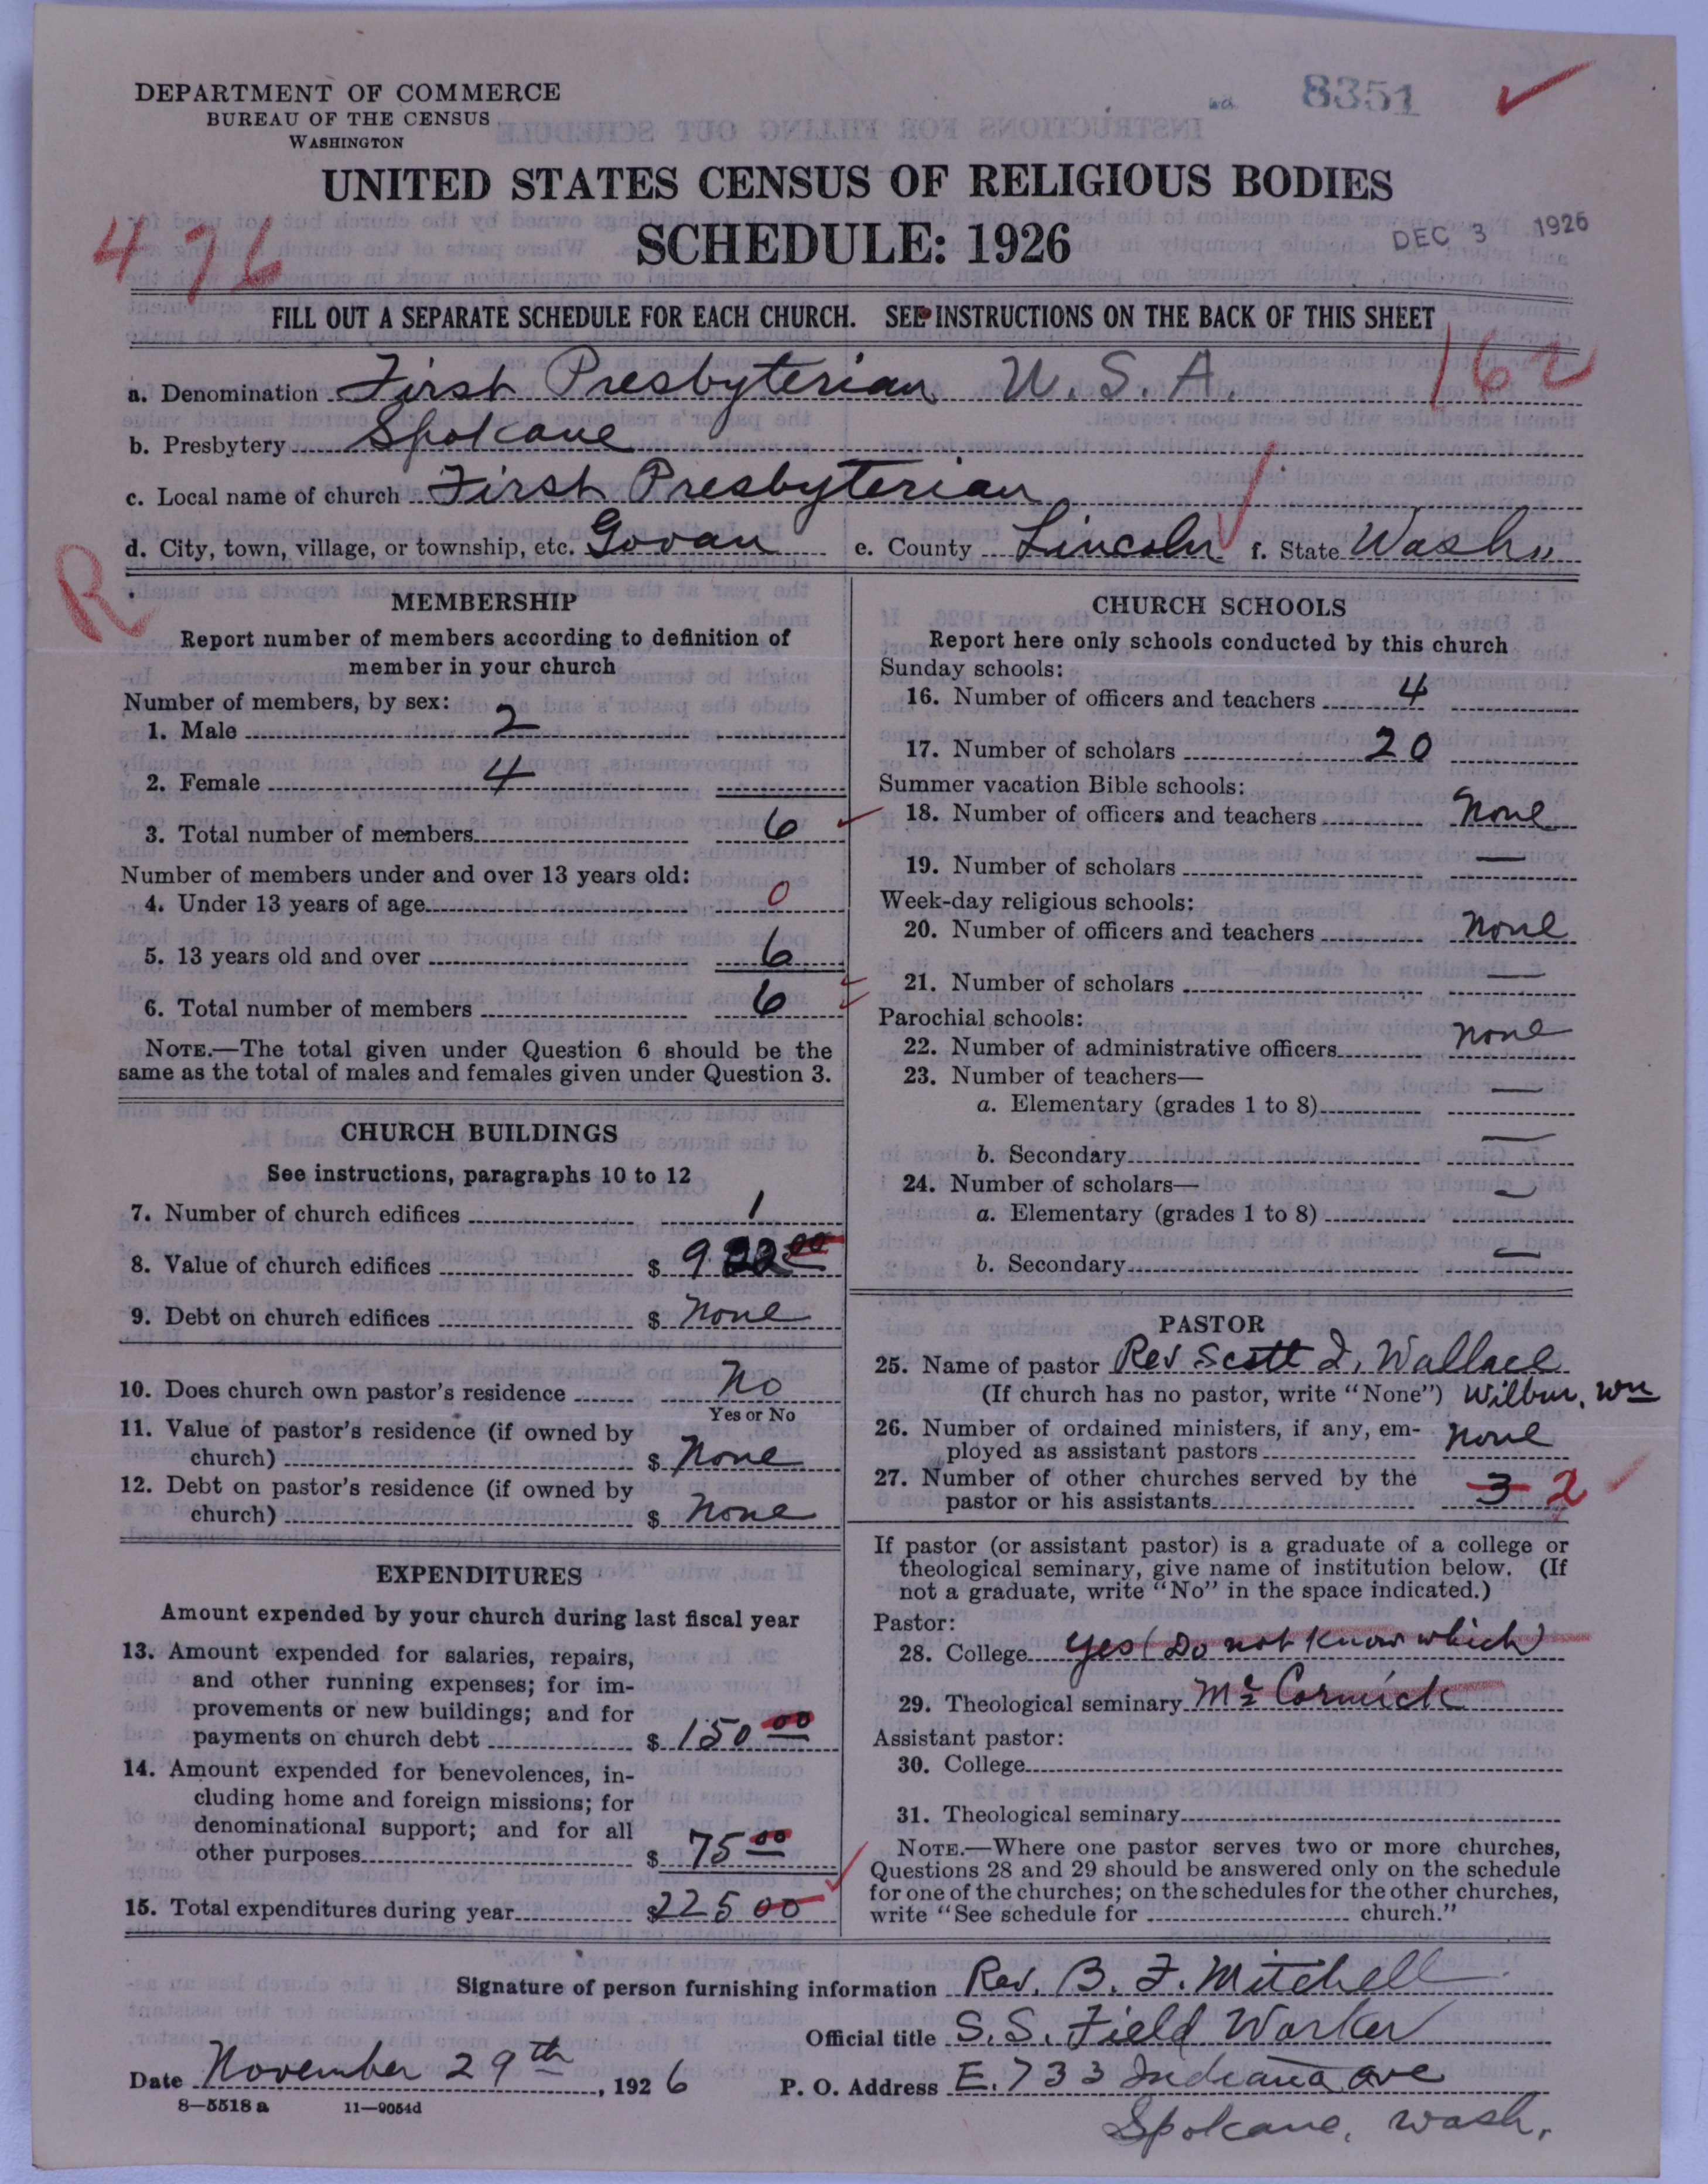 DEPARTMENT OF COMMERCE
BUREAU OF THE CENSUS
WASHINGTON
8351
UNITED STATES CENSUS OF RELIGIOUS BODIES
SCHEDULE: 1926
DEC 3 1926
476
FILL OUT A SEPARATE SCHEDULE FOR EACH CHURCH. SEE INSTRUCTIONS ON THE BACK OF THIS SHEET
162
a. Denomination First Presbyterian, U. S. A.
b. Presbytery Spokane
c. Local name of church First Presbyterian
d. City, town, village, or township, etc. Govan e. County Lincoln f. State Wash.
R
MEMBERSHIP
Report number of members according to definition of
member in your church
Number of members, by sex:
1. Male 2
2. Female 4
3. Total number of members 6
Number of members under and over 13 years old:
4. Under 13 years of age 0
5. 13 years old and over 6
6. Total number of members 6
NOTE.—The total given under Question 6 should be the
same as the total of males and females given under Question 3.
CHURCH BUILDINGS
See instructions, paragraphs 10 to 12
7. Number of church edifices 1
8. Value of church edifices $ 00
9. Debt on church edifices $ None
10. Does church own pastor's residence No
Yes or No
11. Value of pastor's residence (if owned by
church) $ None
12. Debt on pastor's residence (if owned by
church) $ None
EXPENDITURES
Amount expended by your church during last fiscal year
13. Amount expended for salaries, repairs,
and other running expenses; for im-
provements or new buildings; and for
payments on church debt $ 150 00
14. Amount expended for benevolences, in-
cluding home and foreign missions; for
denominational support; and for all
other purposes $ 75 00
15. Total expenditures during year $ 225 00
CHURCH SCHOOLS
Report here only schools conducted by this church
Sunday schools:
16. Number of officers and teachers 4
17. Number of scholars 20
Summer vacation Bible schools:
18. Number of officers and teachers None
19. Number of scholars —
Week-day religious schools:
20. Number of officers and teachers None
21. Number of scholars —
Parochial schools:
22. Number of administrative officers None
23. Number of teachers—
a. Elementary (grades 1 to 8) —
b. Secondary —
24. Number of scholars—
a. Elementary (grades 1 to 8) —
b. Secondary —
PASTOR
25. Name of pastor Rev. Scott I. Wallace
(If church has no pastor, write "None") Wilbur, Wn
26. Number of ordained ministers, if any, em-
ployed as assistant pastors None
27. Number of other churches served by the
pastor or his assistants 3 2
If pastor (or assistant pastor) is a graduate of a college or
theological seminary, give name of institution below. (If
not a graduate, write "No" in the space indicated.)
Pastor:
28. College yes (Do not know which)
29. Theological seminary McCormick
Assistant pastor:
30. College
31. Theological seminary
NOTE.—Where one pastor serves two or more churches,
Questions 28 and 29 should be answered only on the schedule
for one of the churches; on the schedules for the other churches,
write "See schedule for church."
Signature of person furnishing information Rev. B. F. Mitchell
Official title S. S. Field Worker
Date November 29th, 1926 P. O. Address E. 733 Indiana ave
Spokane, Wash.
8—5518 a 11—9054d